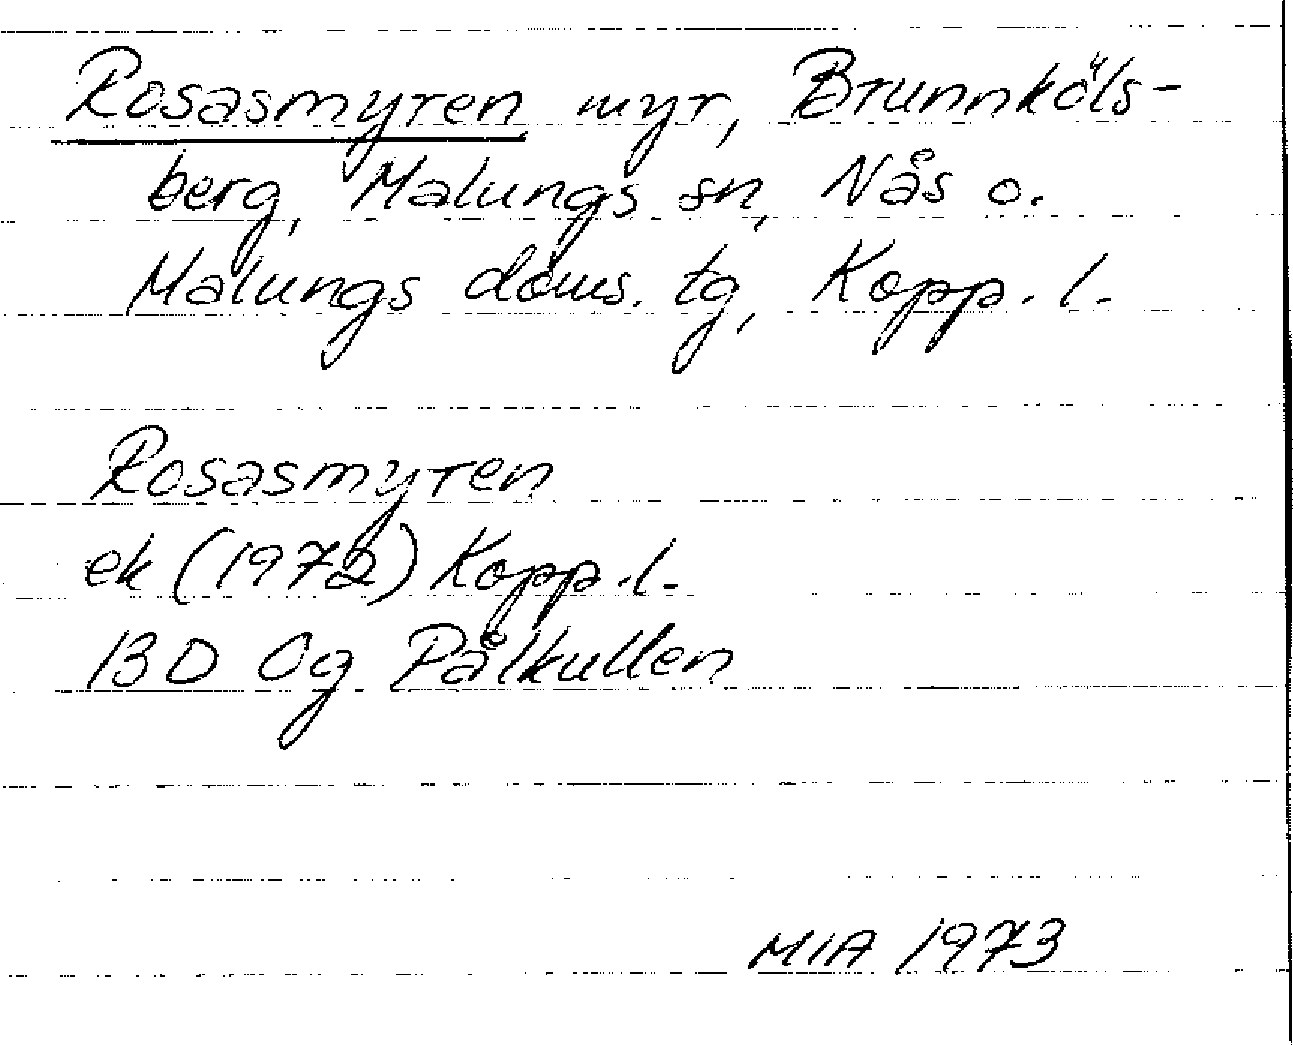 Rosasmyren myr, Brunnköls-
berg, Malungs sn, Nås o.
Malungs doms. tg, Kopp. l.
Rosasmyren
ek (1972) Kopp. l.
13D 0g Pålkullen
MIA 1973